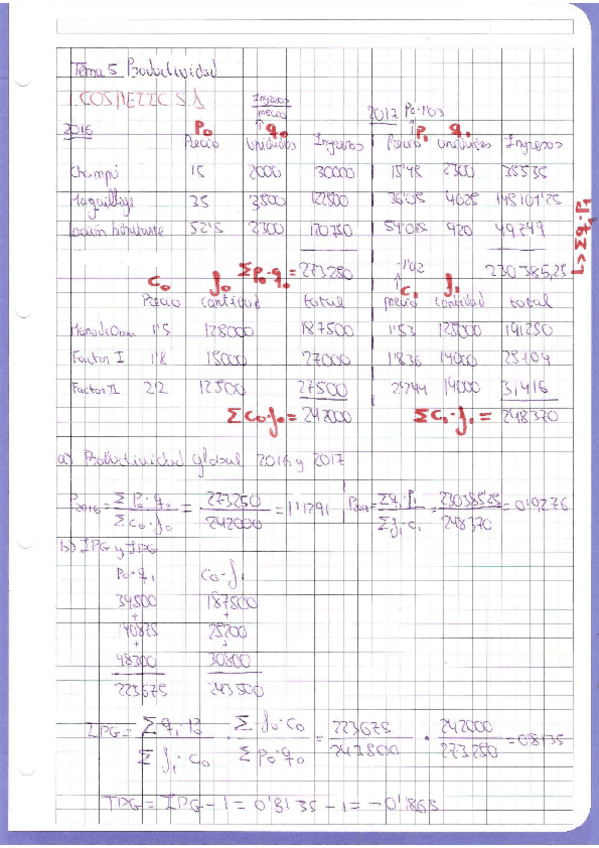 Tema 5 Productividad
COSMETIC S.A
Ingresos
precio
2016 P₀ q₀ 2017 P₀·1'03 P₁ q₁
Precio Unidades Ingresos Precio Unidades Ingresos
Champú 15 2000 30000 15'45 2300 35535
Maquillaje 35 3500 122500 36'05 4025 145101'25
Loción 52'5 2300 120750 54'075 920 49749
Σp₀·q₀ = 273250 ·1'02 230385,25
L> Σq₁·P₁
C₀ f₀ C₁ f₁
Precio cantidad total precio cantidad total
Mano de Obra 1'5 125000 187500 1'53 125000 191250
Factor I 1'8 15000 27000 1'836 14000 25704
Factor II 2'2 12500 27500 2'244 14000 31,416
ΣC₀·f₀ = 242000 ΣC₁·f₁ = 248370
a) Productividad global 2016 y 2017
P₂₀₁₆ = Σ P₀·q₀ / Σ C₀·f₀ = 273250 / 242000 = 1'1291 P₂₀₁₇ = Σq₁·P₁ / Σf₁·c₁ = 230385'25 / 248370 = 0'9276
b) IPG y TPG
P₀·q₁ C₀·f₁
34500 187500
+ +
140875 25200
+ +
48300 30800
223675 243500
IPG = Σ q₁·P₀ / Σ f₁·C₀ · Σ f₀·C₀ / Σ P₀·q₀ = 223675 / 243500 · 242000 / 273250 = 0'8135
TPG = IPG - 1 = 0'8135 - 1 = -0'1865